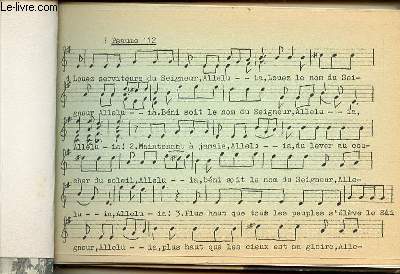 le-livre.com
! Psaume 112
1.Louez serviteurs du Seigneur,Allelu - - ia,Louez le nom du Sei-
gneur Allelu - - ia.Béni soit le nom du Seigneur,Allelu - - ia,
Allelu - ia! 2.Maintenant à jamais,Allelu - - ia,du lever au cou-
cher du soleil,Allelu - - ia,béni soit le nom du Seigneur,Alle-
lu - - ia,Allelu - ia! 3.Plus haut que tous les peuples s'élève le Sei
gneur,Allelu - - ia,plus haut que les cieux est sa gloire,Alle-